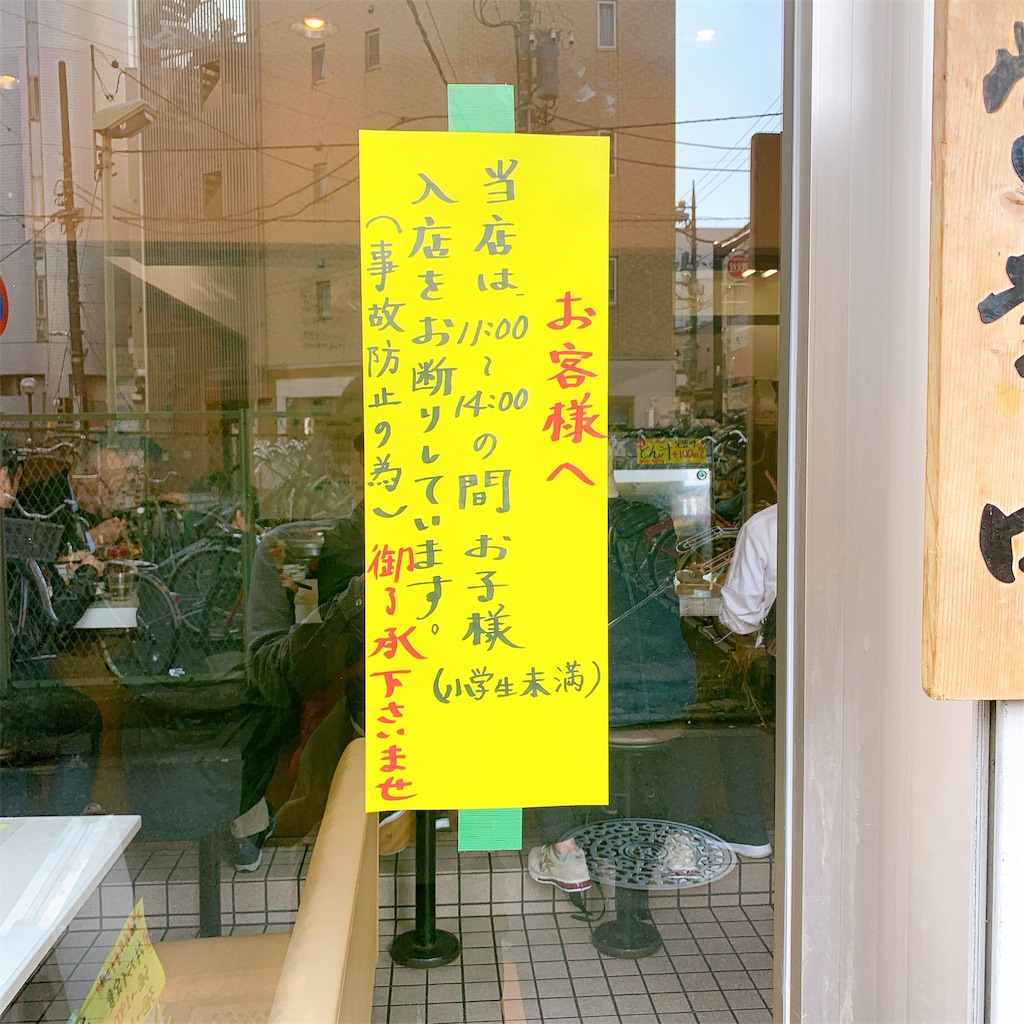 お客様へ
当店は、11:00〜14:00の間お子様(小学生未満)
入店をお断りしています。
(事故防止の為)御了承下さいませ